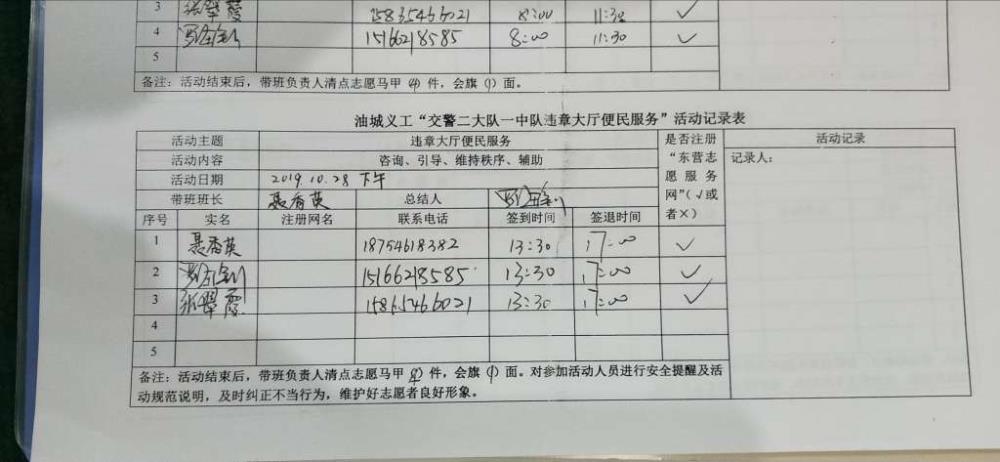 3 张翠霞 15865466021 8:00 11:30 ✓
4 15166218585 8:00 11:30 ✓
5
备注：活动结束后，带班负责人清点志愿马甲（4）件，会旗（1）面。
油城义工“交警二大队一中队违章大厅便民服务”活动记录表
活动主题 违章大厅便民服务 是否注册“东营志愿服务网”（√或者×） 活动记录
活动内容 咨询、引导、维持秩序、辅助 记录人：
活动日期 2019.10.28 下午
带班班长 聂香英 总结人
序号 实名 注册网名 联系电话 签到时间 签退时间
1 聂香英 18754618382 13:30 17:00 ✓
2 15166218585 13:30 17:00 ✓
3 张翠霞 15865466021 13:30 17:00 ✓
4
5
备注：活动结束后，带班负责人清点志愿马甲（4）件，会旗（1）面。对参加活动人员进行安全提醒及活
动规范说明，及时纠正不当行为，维护好志愿者良好形象。